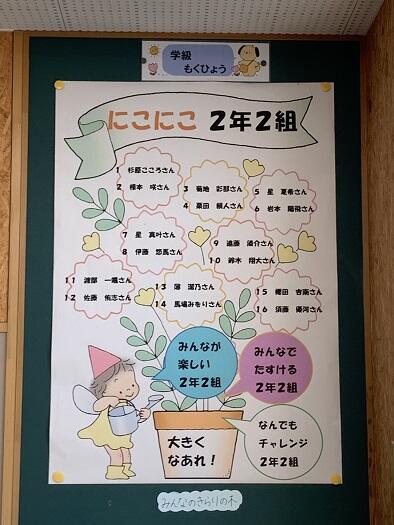 学級
もくひょう
にこにこ 2年2組
1 杉原こころさん
2 榎本 咲さん
3 菊地 彩那さん
4 栗田 頼人さん
5 星 夏希さん
6 岩本 陽飛さん
7 星 真叶さん
8 伊藤 悠馬さん
9 遠藤 湊介さん
10 鈴木 翔大さん
11 渡部 一颯さん
12 佐藤 侑志さん
13 簿 瀬乃さん
14 馬場みをりさん
15 櫻田 杏南さん
16 須藤 優河さん
みんなが
楽しい
2年2組
みんなで
たすける
2年2組
大きく
なあれ！
なんでも
チャレンジ
2年2組
みんなのきらりの木